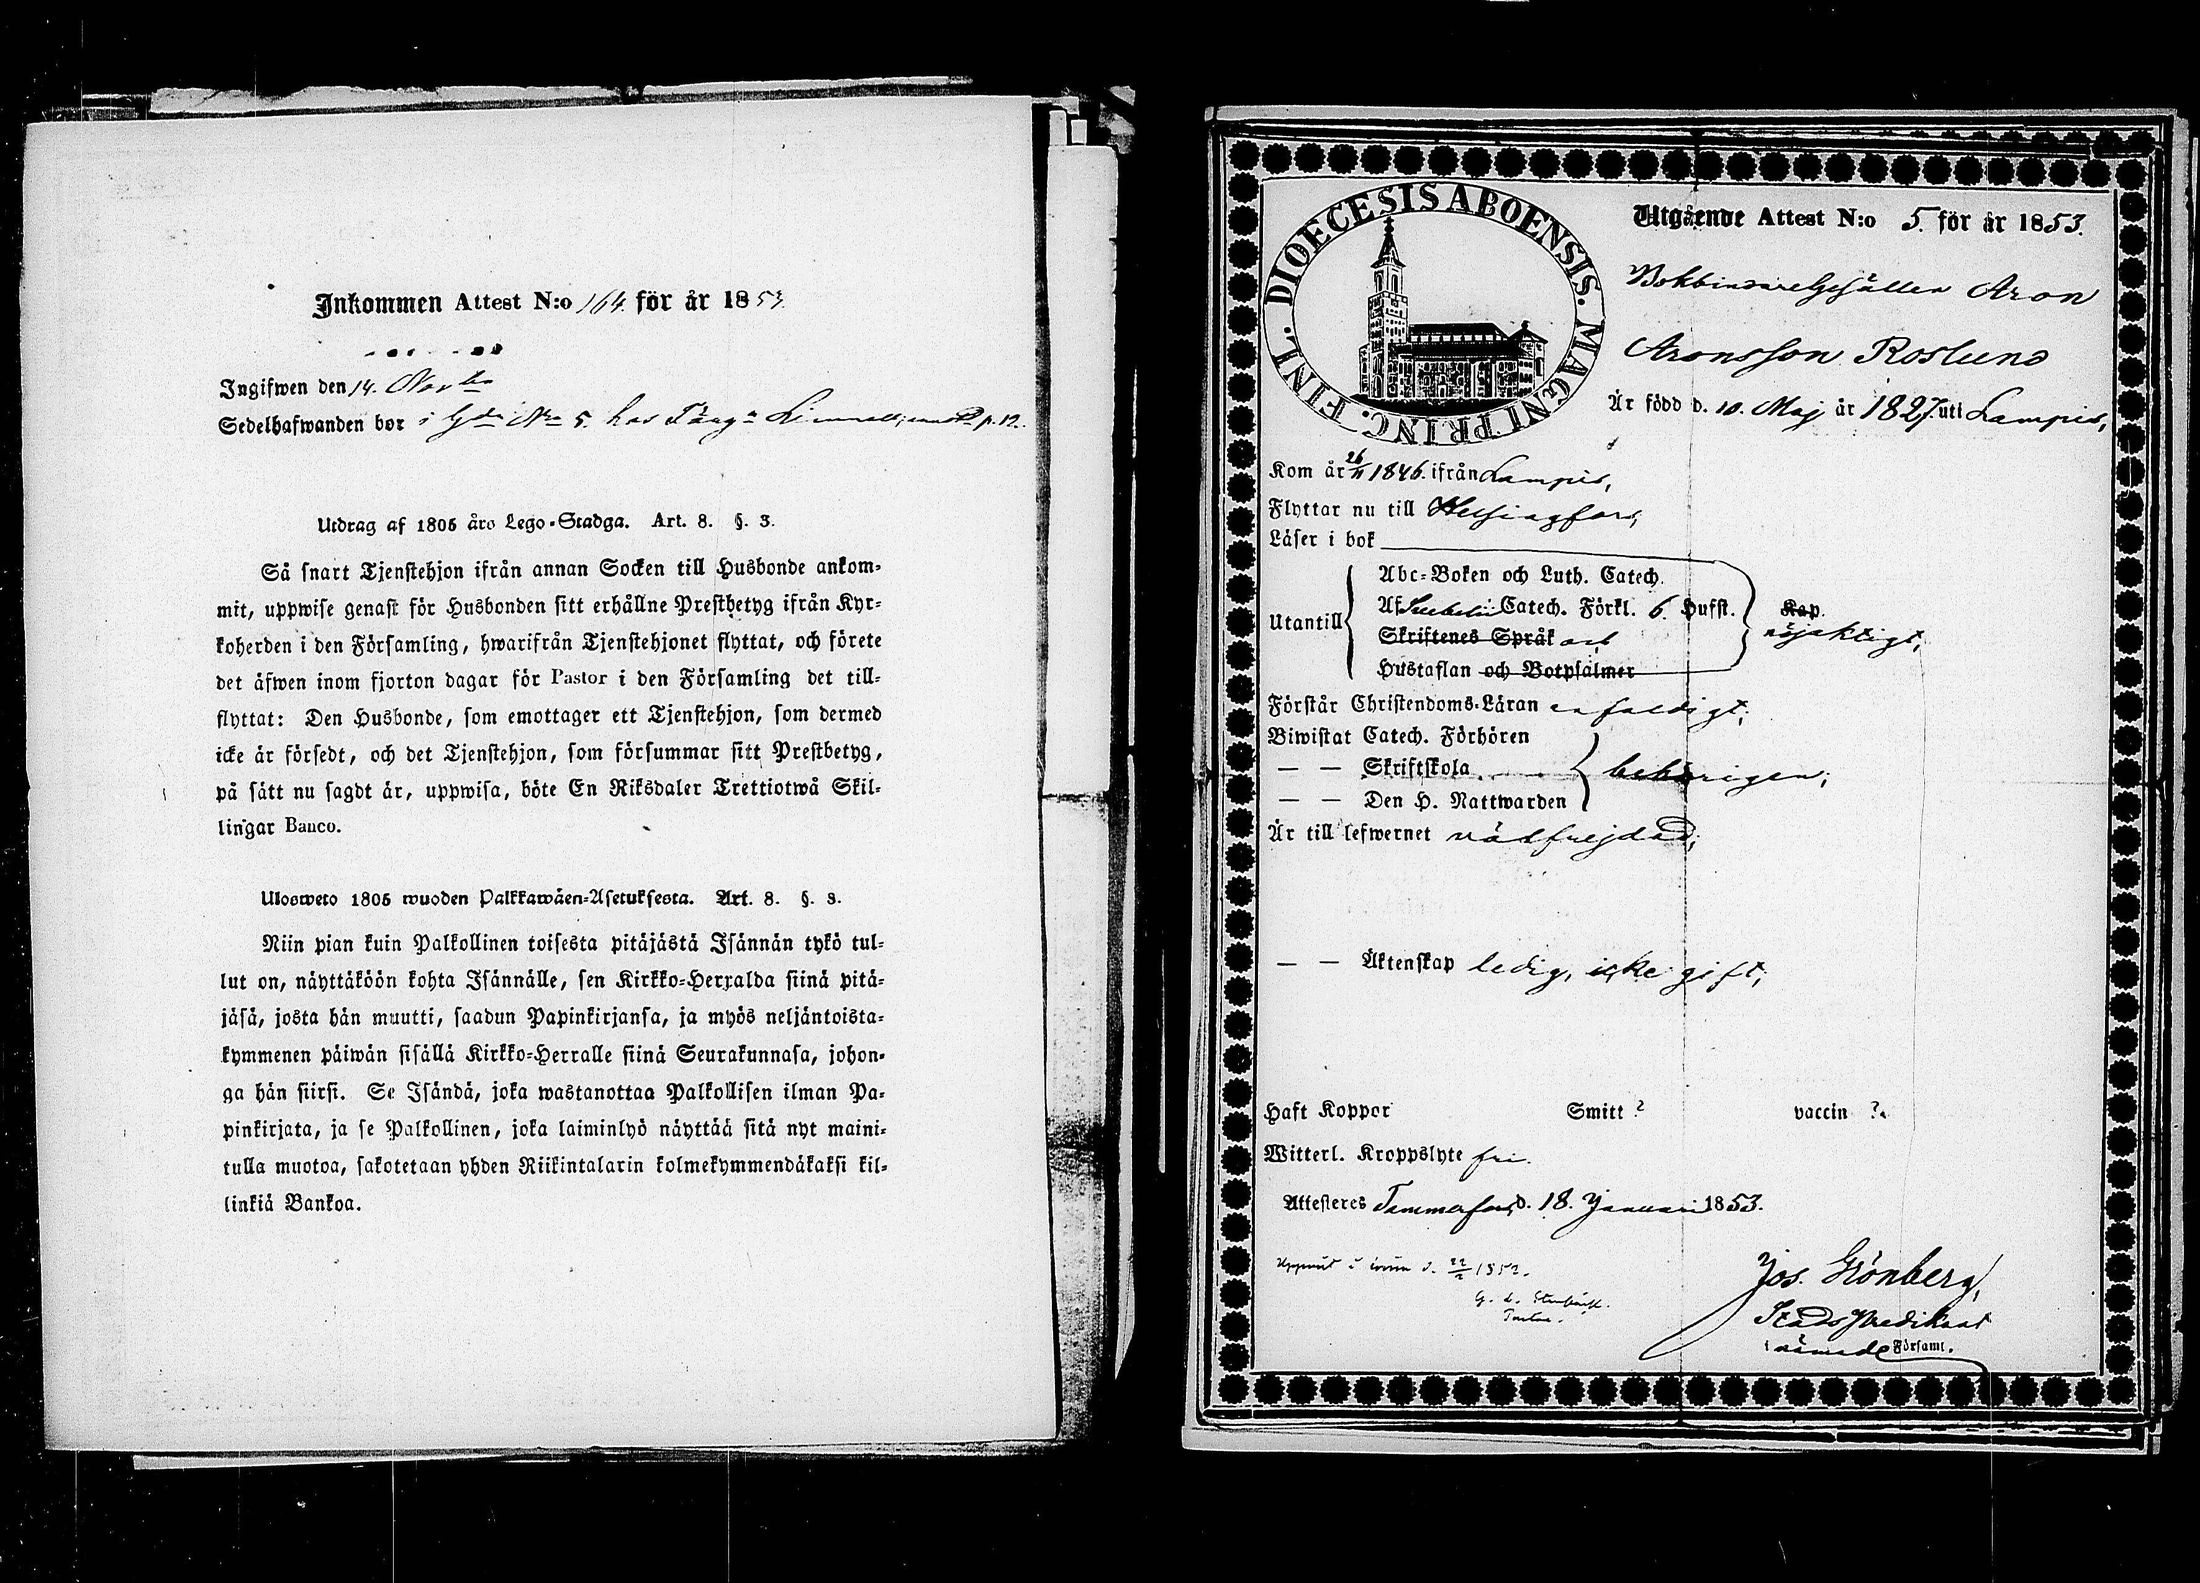 Inkommen Attest N:o 164. för år 1853.
Ingifwen den 14. Novbr
Sedelhafwanden bor i Gdn No 5. hos p. 12.
Utdrag af 1805 års Lego-Stadga. Art. 8. §. 3.
Så snart Tjenstehjon ifrån annan Socken till Husbonde ankom-
mit, uppwise genast för Husbonden sitt erhållne Prestbetyg ifrån Kyr-
koherden i den Församling, hwarifrån Tjenstehjonet flyttat, och förete
det äfwen inom fjorton dagar för Pastor i den Församling det till-
flyttat: Den Husbonde, som emottager ett Tjenstehjon, som dermed
icke är försedt, och det Tjenstehjon, som försummar sitt Prestbetyg,
på sätt nu sagdt är, uppwisa, böte En Riksdaler Trettiotwå Skil-
lingar Banco.
Ulosweto 1805 wuoden Palkkawäen-Asetuksesta. Art. 8. §. 3.
Niin pian kuin Palkollinen toisesta pitäjästä Isännän tykö tul-
lut on, näyttäköön kohta Isännälle, sen Kirkko-Herralda siinä pitä-
jäsä, josta hän muutti, saadun Papinkirjansa, ja myös neljäntoista-
kymmenen päiwän sisällä Kirkko-Herralle siinä Seurakunnasa, johon-
ga hän siirsi. Se Isändä, joka wastanottaa Palkollisen ilman Pa-
pinkirjata, ja se Palkollinen, joka laiminlyö näyttää sitä nyt maini-
tulla muotoa, sakotetaan yhden Riikintalarin kolmekymmendäkaksi kil-
linkiä Bankoa.
DIOECESIS ABOENSIS. MAGNI PRINC. FINL.
Utgående Attest N:o 5. för år 1853.
Bokbindaregesällen Aron
Aronsson Roslund
Är född d. 10. Maj år 1827. uti Lampis,
Kom år 26/11 1846. ifrån Lampis,
Flyttar nu till Helsingfors,
Läser i bok
Utantill
Abc-Boken och Luth. Catech.
Af Svebelii Catech. Förkl. 6. Hufst.
Skriftenes Språk och
Hustaflan och Botpsalmer
Kap.
nöjaktigt,
Förstår Christendoms-Läran enfaldigt,
Biwistat Catech. Förhören
— — Skriftskola behörigen,
— — Den H. Nattwarden
Är till lefwernet välfrejdad,
— — Äktenskap ledig, icke gift,
Haft Koppor Smitt ? vaccin ?.
Witterl. Kroppslyte fri.
Attesteres Tammerfors d. 18. Januari 1853.
d. 22/2 1853.
Jos. Grönberg,
StadsPredikant
i nämnde Församl.